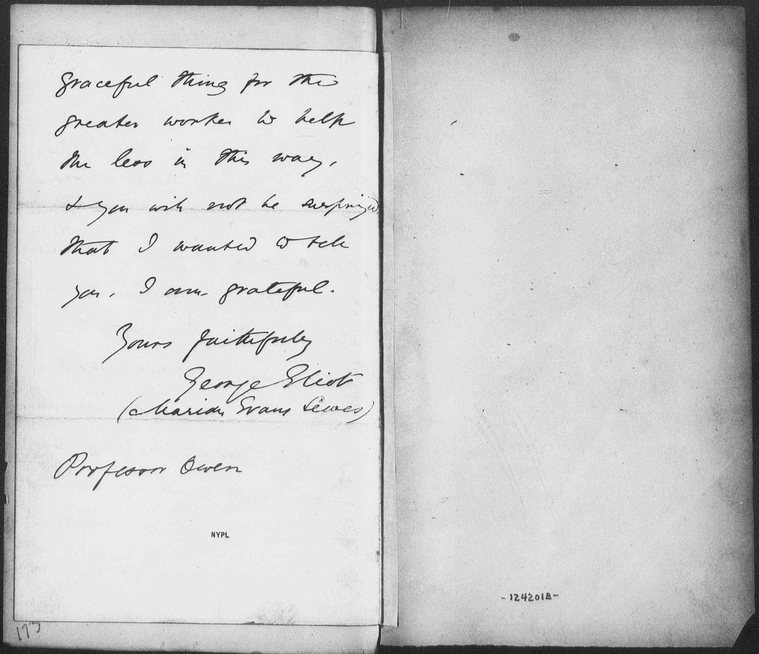 graceful thing for the
greater worker to help
the less in this way,
& you will not be surprized
that I wanted to tell
you. I am grateful.
Yours faithfully
George Eliot
(Marian Evans Lewes)
Professor Owen
NYPL
173
-124201B-